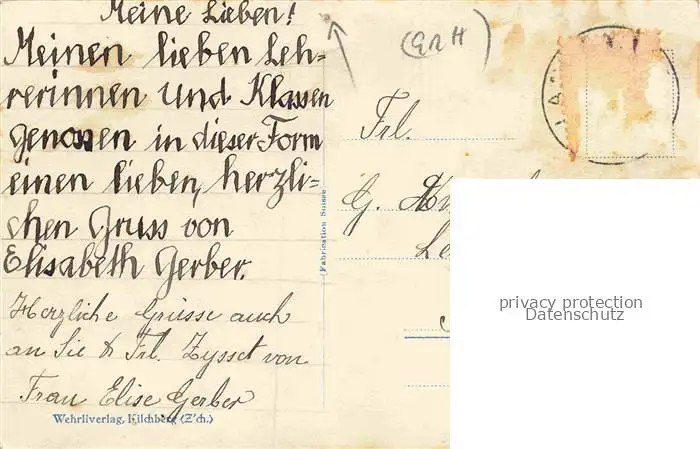 Meine Lieben!
Meinen lieben Leh-
rerinnen und Klassen
genossen in dieser Form
einen lieben, herzli-
chen Gruss von
Elisabeth Gerber.
Herzliche Grüsse auch
an Sie & Frl. Zysset von
Frau Elise Gerber
Wehrliverlag, Kilchberg (Z'ch.)
Fabrication Suisse
Frl.
G.
privacy protection
Datenschutz